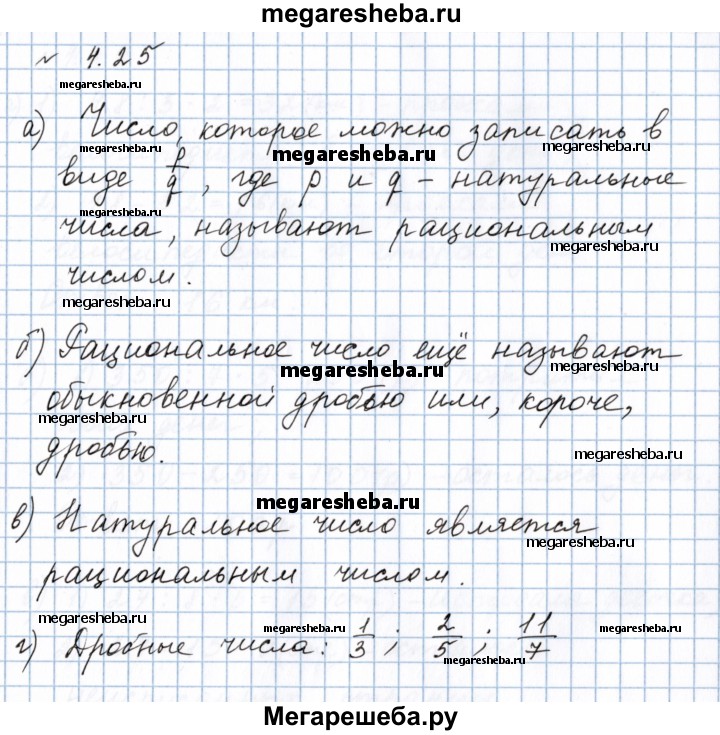 megaresheba.ru
№ 4.25
megaresheba.ru
а) Число, которое можно записать в
megaresheba.ru
megaresheba.ru
виде p/q, где p и q – натуральные
megaresheba.ru
числа, называют рациональным
megaresheba.ru
числом.
megaresheba.ru
б) Рациональное число ещё называют
megaresheba.ru
обыкновенной дробью или, короче,
megaresheba.ru
megaresheba.ru
дробью.
megaresheba.ru
в) Натуральное число является
megaresheba.ru
рациональным числом.
megaresheba.ru
г) Дробные числа: 1/3; 2/5; 11/7
megaresheba.ru
megaresheba.ru
megaresheba.ru
Мегарешеба.ру